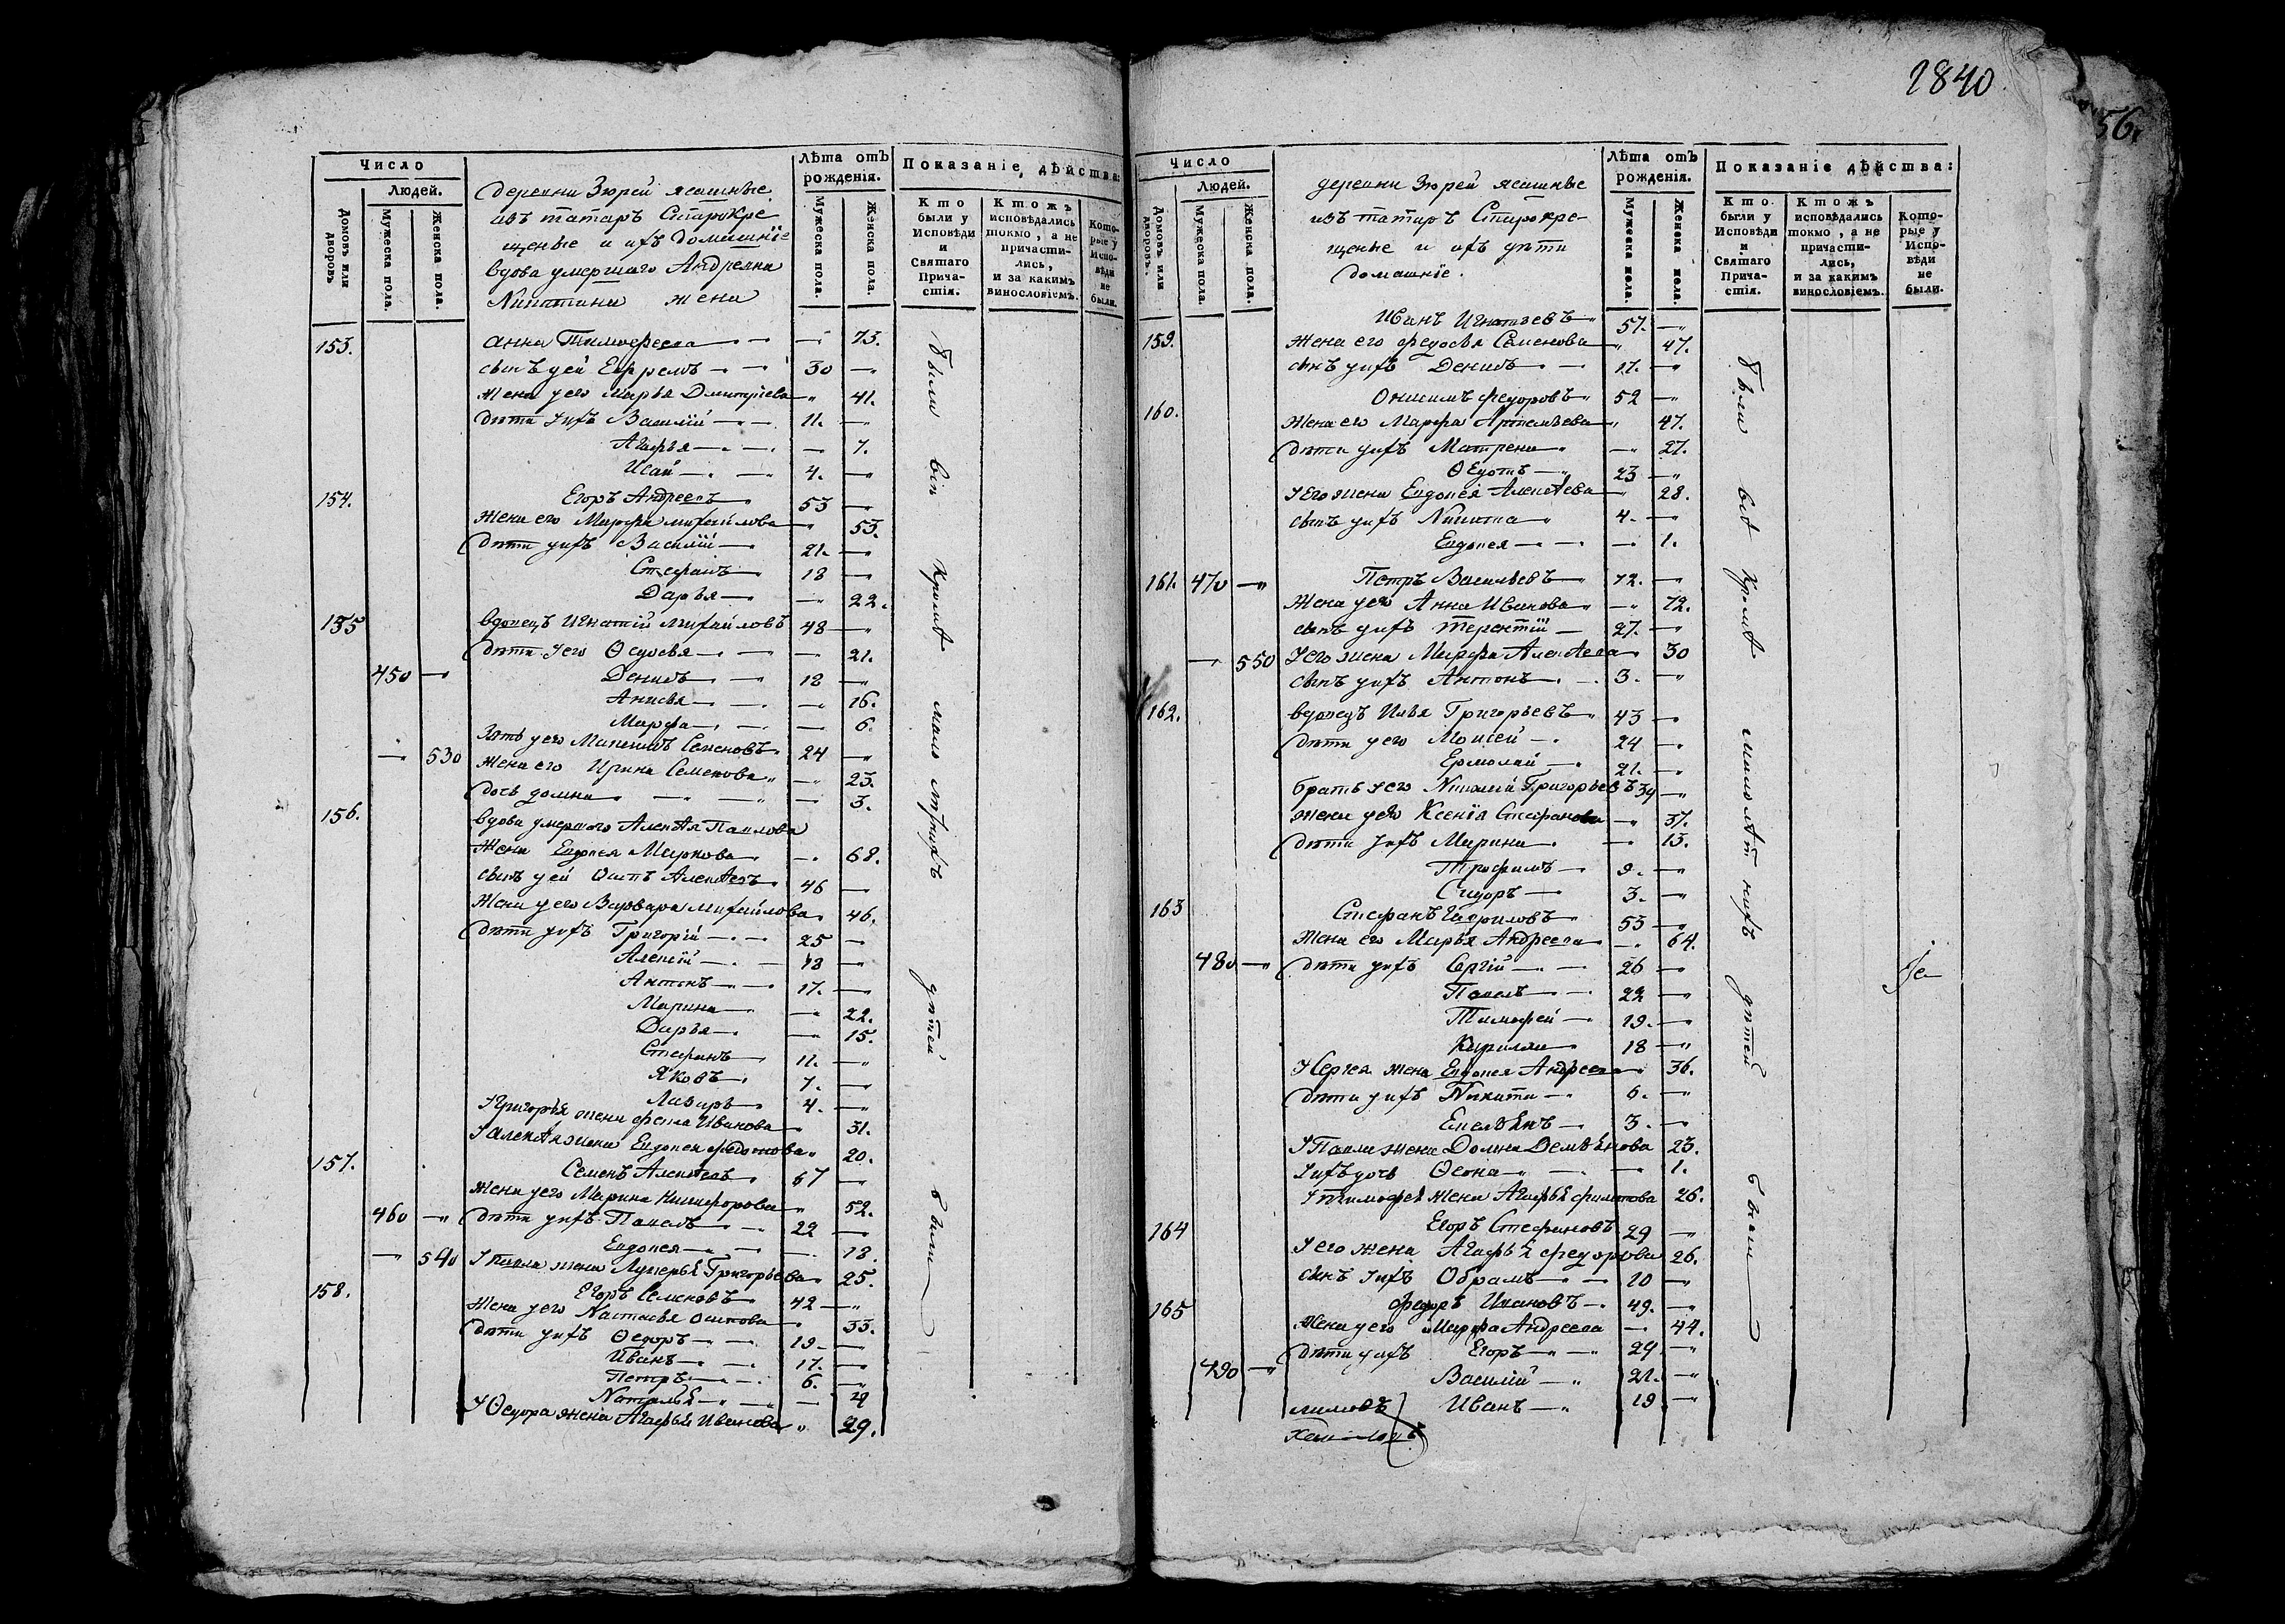 1840
56.
Число
Людей.
Домовъ или дворовъ
Мужеска пола.
Женска пола.
деревни Зюрей ясашные
изъ татаръ Старокре-
щеные и ихъ домашніе
вдова умершаго Андреяна
Никитина жена
Лѣта отъ рожденія.
Мужеска пола.
Женска пола.
Показаніе дѣйства:
Кто были у Исповѣди и Святаго Причастія.
Ктожъ исповѣдались токмо, а не причастились, и за какимъ винословіемъ.
Которые у Исповѣди не были.
153. Анна Тимофеева — 73.
сынъ у ей Ефремъ 30 —
жена у его Марья Дмитріева 41.
дѣти у ихъ Василій 11. —
Агафья — 7.
Исай 4. —
154. Егоръ Андреевъ 53 —
жена его Марфа михайлова 53.
дѣти у ихъ Василій 21. —
Стефанъ 18 —
Дарья — 22.
155 вдовецъ Игнатій михайловъ 48 —
дѣти у его Ѳедосья — 21.
450 — Денисъ 18 —
Анисья — 16.
Марфа — 6.
зять у его Максимъ Семеновъ 24 —
— 530 жена его Ирина Семенова — 23.
дочь домна — 3.
156. вдова умершаго Алексѣя Павлова
жена Евдокея Маркова — 68.
сынъ у ей Осипъ Алексѣевъ 46 —
жена у его Варвара михайлова 46.
дѣти у ихъ Григорій 25 —
Алексій 18 —
Антонъ 17. —
Марина — 22.
Дарья — 15.
Стефанъ 11. —
Яковъ 7. —
Лазарь 4. —
У Григорья жена фекла Иванова 31.
У Алексѣя жена Евдокея федотова 20.
157. Семенъ Алексѣевъ 67 —
жена у его Марина Никифорова 52.
460 — дѣти у ихъ Павелъ 22 —
Евдокея — 18.
— 540 У павла жена Лукерья Григорьева 25.
158. Егоръ Семеновъ 42 —
жена у его Настасья осипова 33.
дѣти у ихъ Ѳедоръ 19 —
Иванъ 17. —
Петръ 6. —
Наталья —
У Ѳедора жена Агафья Иванова 29.
были всѣ кромѣ малолѣтнихъ дѣтей были
Число
Людей.
Домовъ или дворовъ.
Мужеска пола.
Женска пола.
деревни Зюрей ясашные
изъ татаръ Старокре-
щеные и ихъ дѣти
домашніе.
Лѣта отъ рожденія.
Мужеска пола.
Женска пола.
Показаніе дѣйства:
Кто были у Исповѣди и Святаго Причастія.
Ктожъ исповѣдались токмо, а не причастились, и за какимъ винословіемъ.
Которые у Исповѣди не были.
159. Иванъ Игнатьевъ 57. —
жена его федосья Семенова 47.
сынъ у ихъ Денисъ 17. —
160. Онисимъ федоровъ 52 —
жена его Марфа Артемьева 47.
дѣти у ихъ Матрена — 27.
Ѳедотъ 23 —
У его жена Евдокея Алексѣева 28.
сынъ у ихъ Никита 4. —
Евдокея — 1.
161. 470 — Петръ Васильевъ 72. —
жена у его Анна Иванова — 72.
сынъ у ихъ терентій 27. —
— 550 У его жена Марфа Алексѣева 30
сынъ у ихъ Антонъ 3. —
162. вдовецъ Илья Григорьевъ 43 —
дѣти у его Моисей 24 —
Ермолай 21. —
братъ у его Николай Григорьевъ 39 —
жена у его Ксенія Стефанова — 37.
дѣти у ихъ Марина — 13.
Трофимъ 9. —
Сидоръ 3. —
163 Стефанъ Гавриловъ 53 —
жена его Марья Андреева — 64.
480 — дѣти у ихъ Сергій 26 —
Павелъ 22 —
Тимофей 19. —
Кирилла 18 —
У Сергея жена Евдокея Андреева 36.
дѣти у ихъ Никита 6. —
Емельянъ 3. —
У Павла жена Домна Демьянова 23.
У ихъ дочь Ѳеона — 1.
У тимофея жена Агафья филипова 26.
164 Егоръ Стефановъ 29 —
У его жена Агафья федорова 26.
сынъ у ихъ Обрамъ 10 —
165 федоръ Ивановъ 49. —
жена у его Марфа Андреева — 44.
дѣти у ихъ Егоръ 24 —
490 — Василій 21. —
Иванъ 19 —
были всѣ кромѣ малолѣтнихъ дѣтей были